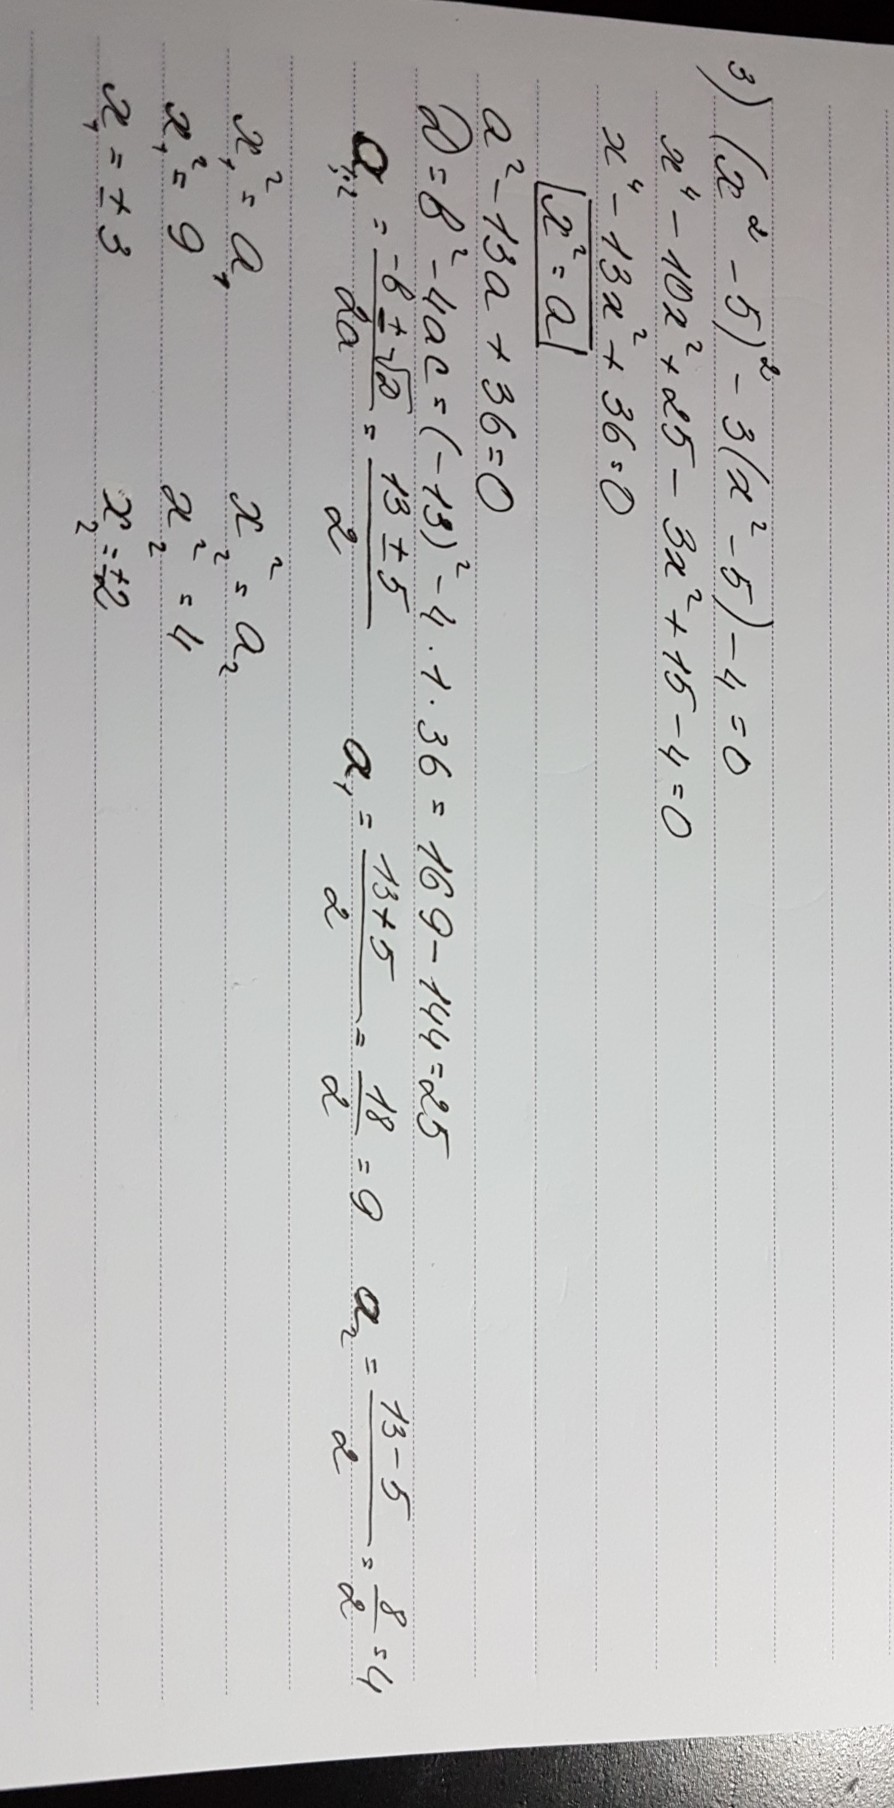 3) (x² - 5)² - 3(x² - 5) - 4 = 0
x⁴ - 10x² + 25 - 3x² + 15 - 4 = 0
x⁴ - 13x² + 36 = 0
x² = a
a² - 13a + 36 = 0
D = b² - 4ac = (-13)² - 4 · 1 · 36 = 169 - 144 = 25
a₁,₂ = (-b ± √D)/2a = (13 ± 5)/2 a₁ = (13 + 5)/2 = 18/2 = 9 a₂ = (13 - 5)/2 = 8/2 = 4
x₁² = a₁ x₂² = a₂
x₁² = 9 x₂² = 4
x₁ = ± 3 x₂ = ±2